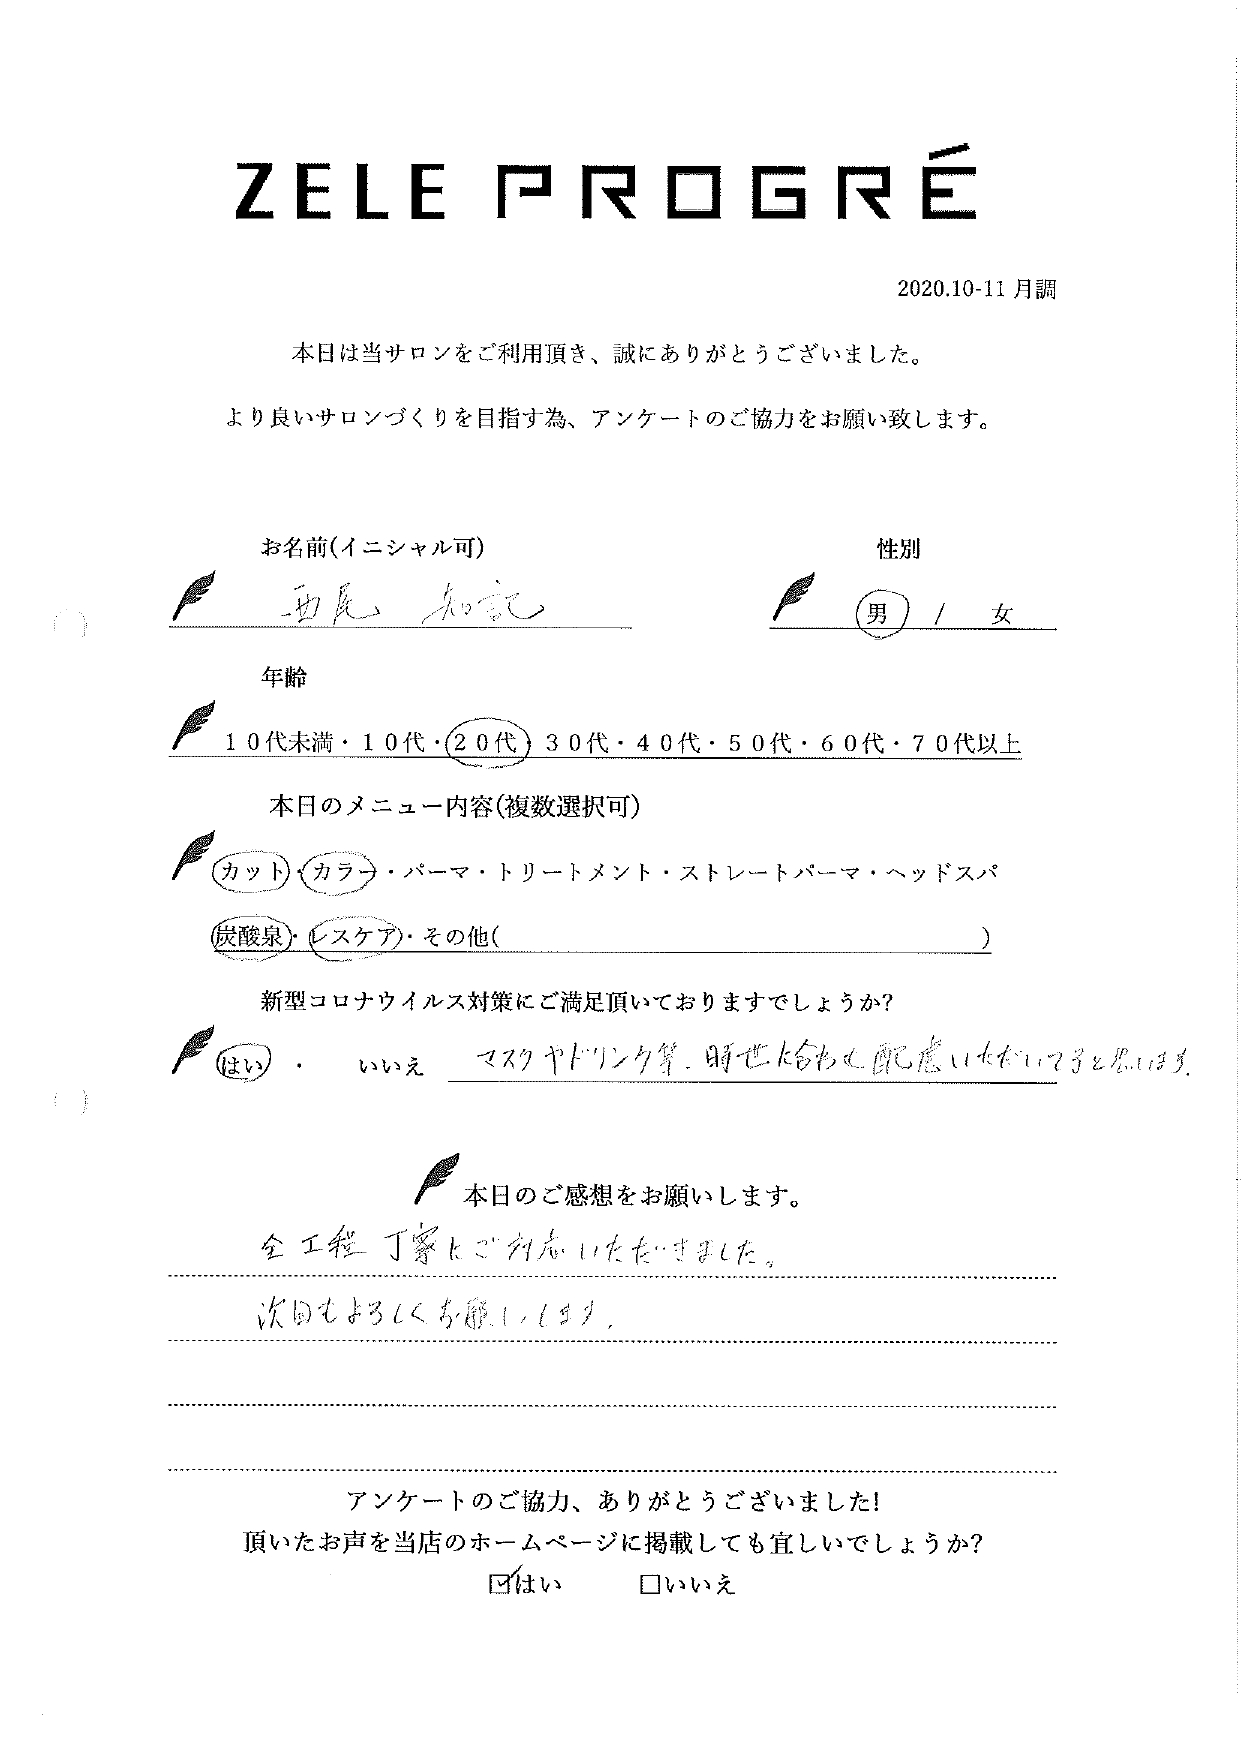 ZELE PROGRÉ
2020.10-11 月調
本日は当サロンをご利用頂き、誠にありがとうございました。
より良いサロンづくりを目指す為、アンケートのご協力をお願い致します。
お名前(イニシャル可) 性別
西尾 知記 男 / 女
年齢
１０代未満・１０代・２０代・３０代・４０代・５０代・６０代・７０代以上
本日のメニュー内容(複数選択可)
カット・カラー・パーマ・トリートメント・ストレートパーマ・ヘッドスパ
炭酸泉・レスケア・その他( )
新型コロナウイルス対策にご満足頂いておりますでしょうか?
はい ・ いいえ マスクやドリンク等、時世に合わせ配慮いただいてると思います。
本日のご感想をお願いします。
全工程丁寧にご対応いただきました。
次回もよろしくお願いします。
アンケートのご協力、ありがとうございました!
頂いたお声を当店のホームページに掲載しても宜しいでしょうか?
☑はい □いいえ